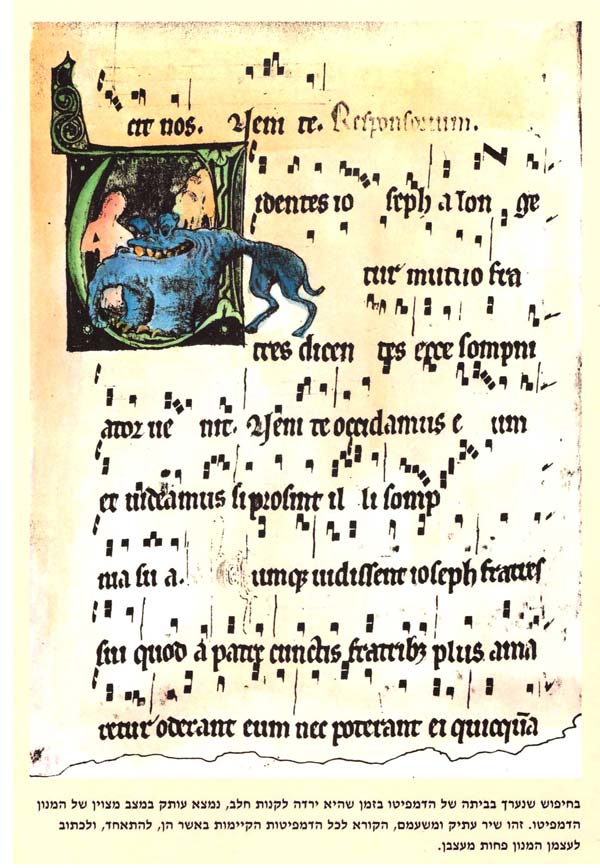 cit nos. Veni te. Responsorium.
identes io seph a lon ge
tur mutuo fra
tres dicen tes ecce sompni
ator ue nit. Veni te occidamus e um
et uideamus si prosint il li somp
nia su a. umqȝ uidissent ioseph fratres
sui quod a patre cunctis fratribȝ plus ama
retur oderant eum nec poterant ei quicqua̅
בחיפוש שנערך בביתה של הדמפיטו בזמן שהיא ירדה לקנות חלב, נמצא עותק במצב מצוין של המנון
הדמפיטו. זהו שיר עתיק ומשעמם, הקורא לכל הדמפיטות הקיימות באשר הן, להתאחד, ולכתוב
לעצמן המנון פחות מעצבן.